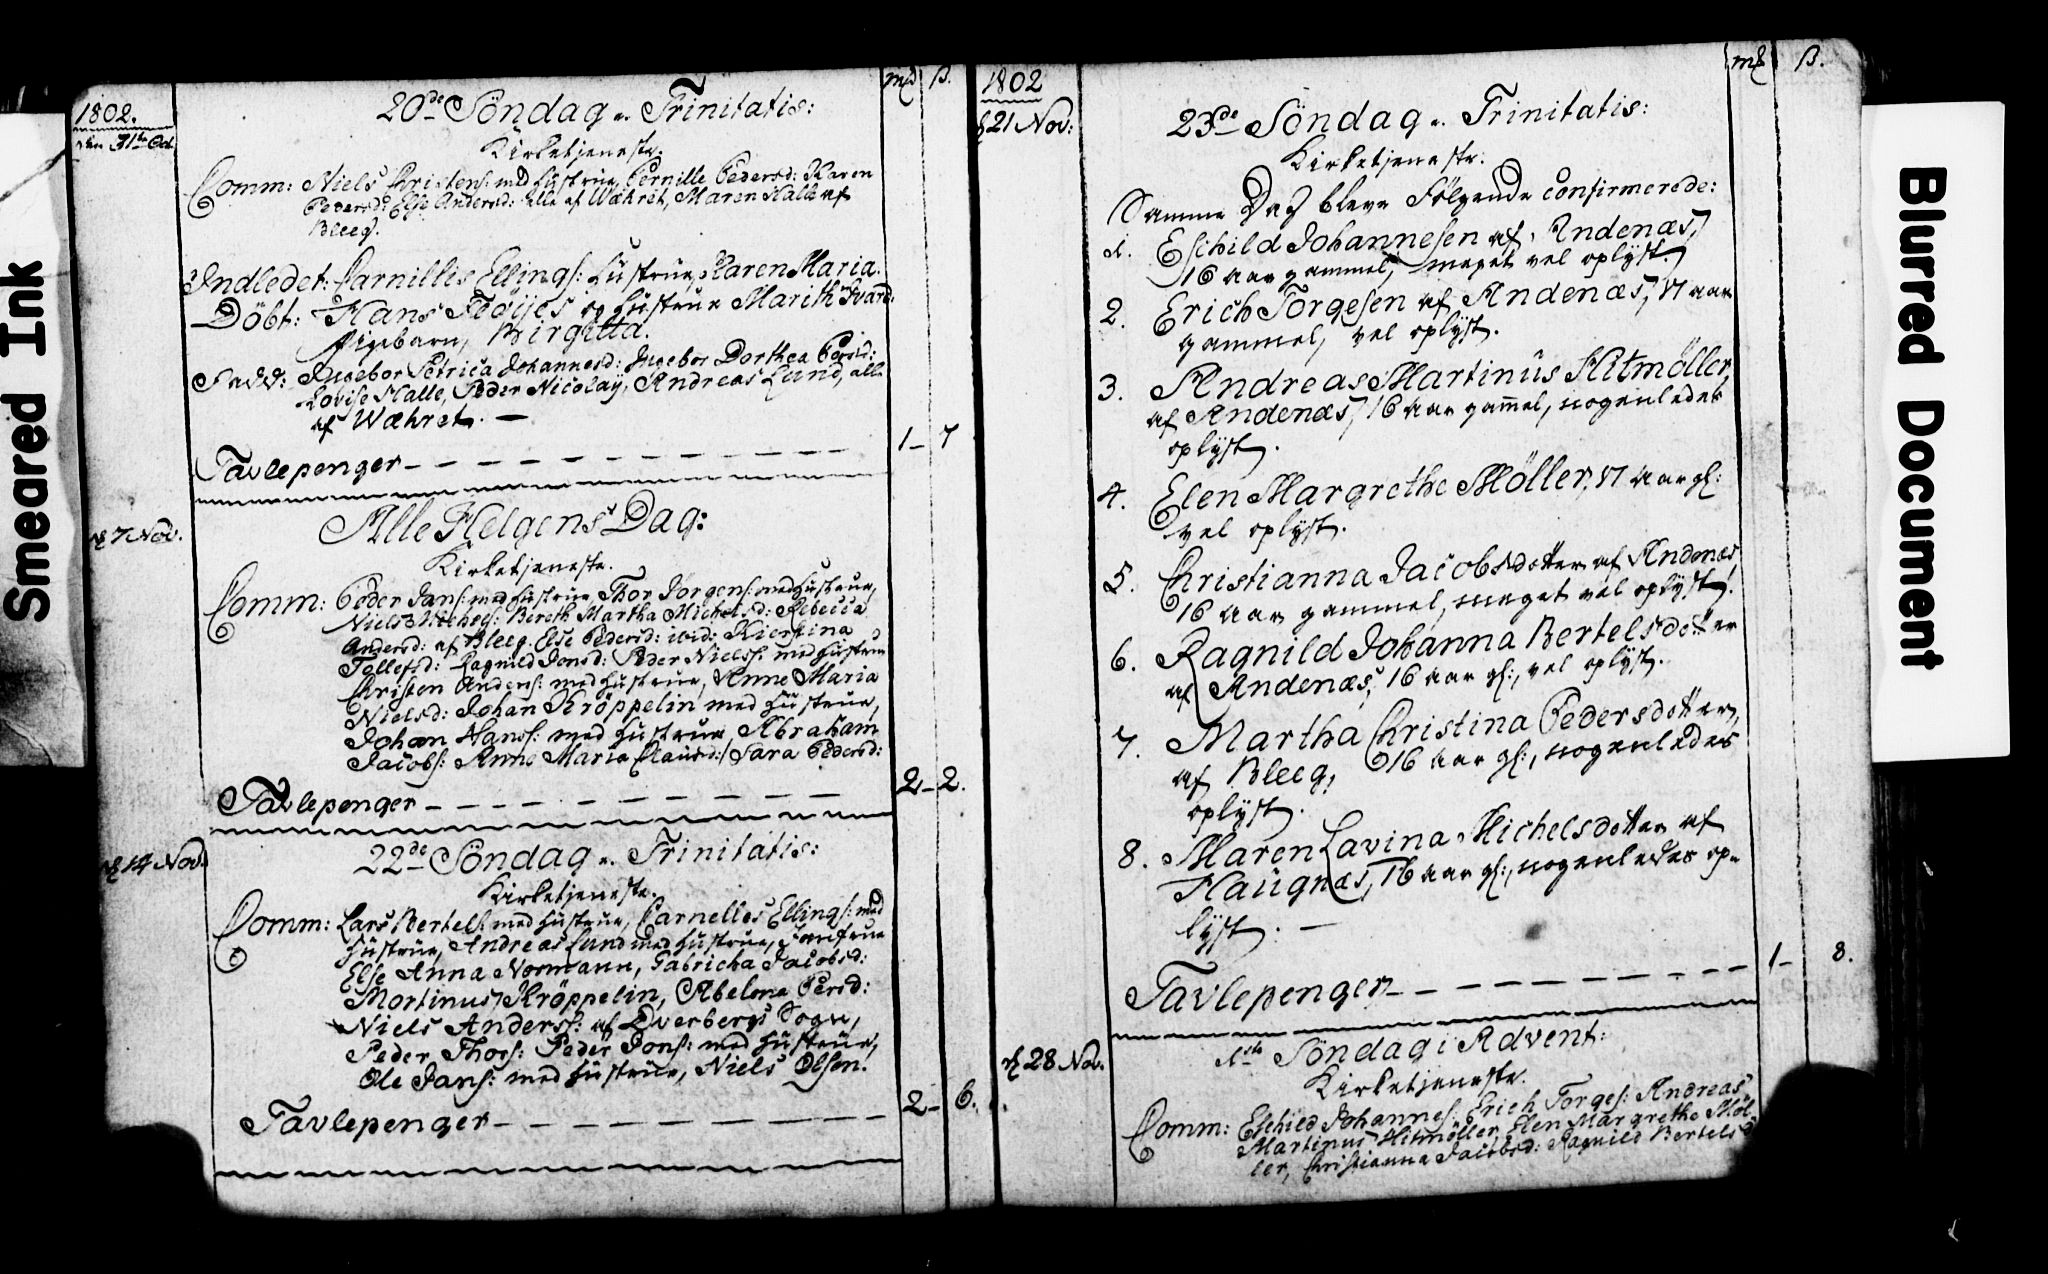 Smeared Ink
1802.
den 31te Oct.
mk ß.
20de Söndag e. Trinitatis:
Kirketjeneste.
Comm: Niels Christens: med Hustrue, Pernille Pedersd: Karen
Pedersd: Else Andersd: alle af Wæhret, Maren Halle af
Bleeg.
Indledet: Carnillis Ellings: Hustrue, Karen Maria.
Döbt: Hans Födijes og Hustrue Marith
Pigebarn, Birgitta.
Fadd: Ingebor Petrica Johannesd: Ingebor Dorthea Persd:
Lovise Halle, Peder Nicolay, Andreas Lund, alle
af Wæhret. —
Tavlepenger — 1 – 7
d 7 Nov.
Alle Helgens Dag:
Kirketjeneste.
Comm: Peder Jans: med Hustrue, Thor Jörgens: med Hustrue,
Niels Michels: Bereth Martha Michelsd: Rebecca
Andersd: af Bleeg. Else Pedersd: ibid: Kierstina
Tollefsd: Ragnild Jonsd: Peder Nielss: med Hustrue
Christen Anders: med Hustrue, Anne Maria
Nielsd: Johan Kröppelin med Hustrue,
Johan Hanss: med Hustrue, Abraham
Jacobs: Anne Maria Clausd: Sara Pedersd:
Tavlepenger — 2 – 2.
d 14 Nov.
22de Söndag e. Trinitatis:
Kirketjeneste.
Comm: Lars Bertels: med Hustrue, Carnelles Ellings: med
Hustrue, Andreas Lund med Hustrue, Jomfrue
Else Anna Normann, Gabricha Jacobsd:
Mortinus Kröppelin, Abelona Persd:
Niels Anderss: af Dverbergs Sogn,
Peder Thors: Peder Jons: med Hustrue,
Ole Jans: med Hustrue, Niels Olsen.
Tavlepenger — 2 – 6.
1802
d 21 Nov:
mk ß.
23de Söndag e. Trinitatis:
Kirketjeneste:
Samme Dag bleve Fölgende confirmerede:
1. Eschild Johannesen af Andenæs,
16 aar gammel, meget vel oplyst.
2. Erich Torgesen af Andenæs, 17 aar
gammel, vel oplyst.
3. Andreas Martinus Hitmöller,
af Andenæs, 16 aar gamel, nogenledes
oplyst.
4. Elen Margrethe Möller, 17 aar gl:
vel oplyst.
5. Christianna Jacobsdotter af Andenæs,
16 aar gammel, meget vel oplyst.
6. Ragnild Johanna Bertelsdotter
af Andenæs, 16 aar gl:, vel oplyst.
7. Martha Christina Pedersdotter,
af Bleeg, 16 aar gl:, nogenledes
oplyst.
8. Maren Lavina Michelsdotter af
Haugnæs, 16 aar gl:, nogenledes op-
lyst. —
Tavlepenger — 1 – 8.
d 28 Nov.
1ste Söndag i Advent:
Kirketjeneste.
Comm: Eschild Johannes: Erich Torges: Andreas
Martinus Hitmöller, Elen Margrethe Möl-
ler, Christianna Jacobsd: Ragnild Bertelsd
Blurred Document